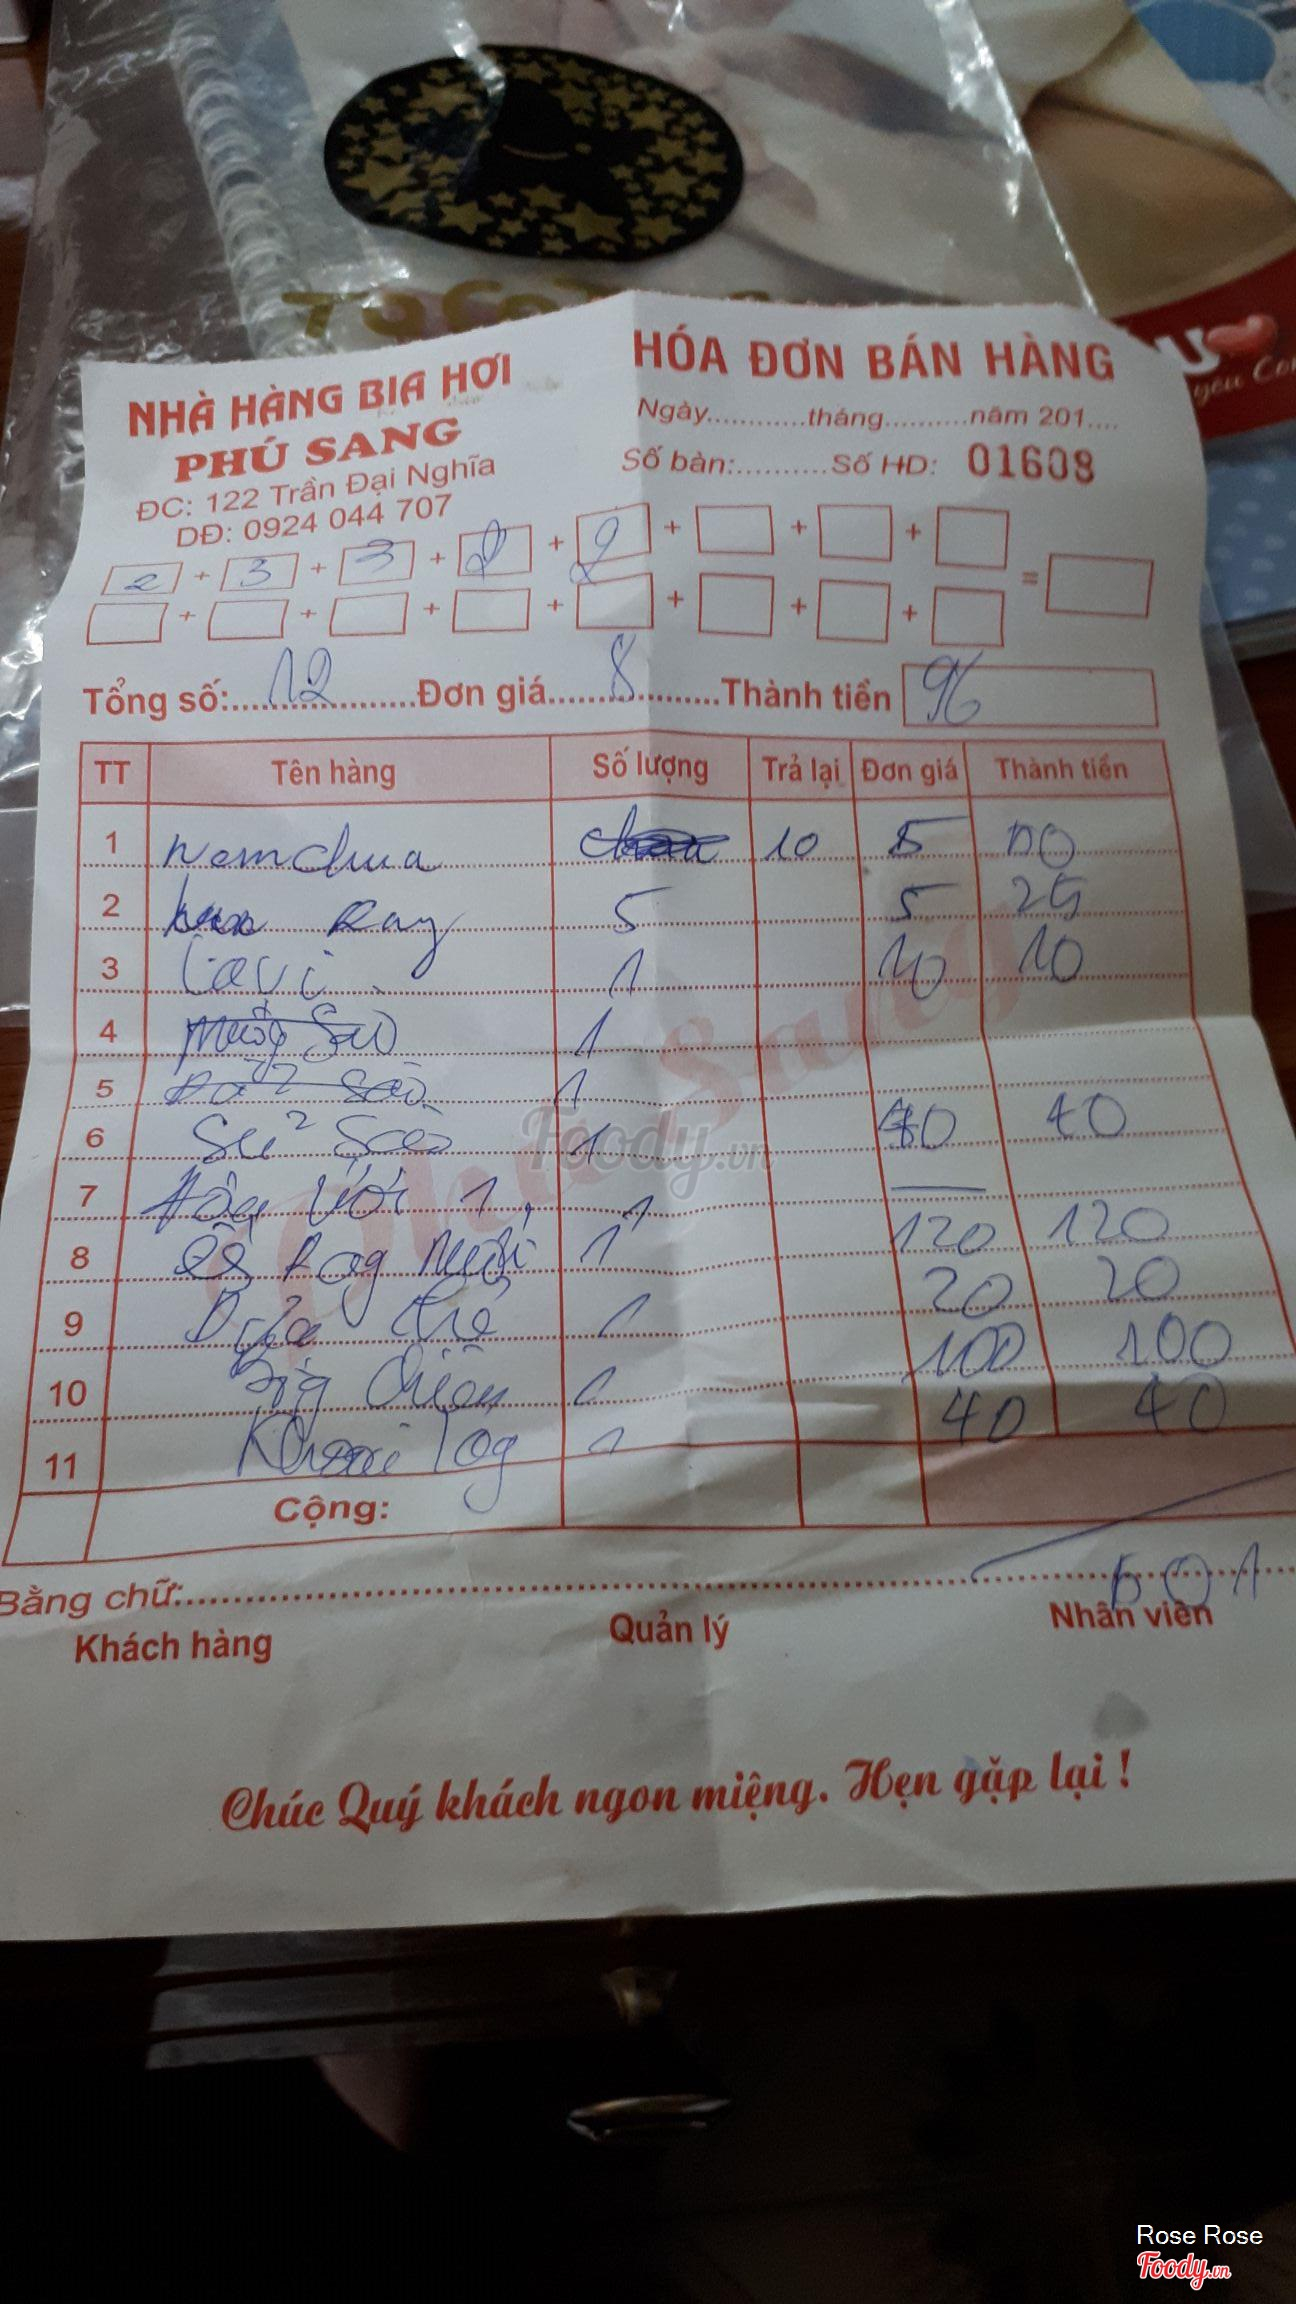 NHÀ HÀNG BIA HƠI
PHÚ SANG
ĐC: 122 Trần Đại Nghĩa
DĐ: 0924 044 707
HÓA ĐƠN BÁN HÀNG
Ngày............tháng..........năm 201....
Số bàn:..........Số HD: 01608
2 + 3 + 3 + 2 + 2 + + + =
+ + + + + + +
Tổng số: 12 Đơn giá 8 Thành tiền 96
TT Tên hàng Số lượng Trả lại Đơn giá Thành tiền
1 nem chua 10 5
2 5 5 25
3 Lavi 1 10 10
4 1
5 1
6 Su² Sào 1 40 40
7 1
8 1 120 120
9 Dưa chê 1 20 20
10 chiên 1 100 100
11 Khoai 1 40 40
Cộng:
Bằng chữ: 601
Khách hàng Quản lý Nhân viên
Chúc Quý khách ngon miệng. Hẹn gặp lại !
Phú Sang
Foody.vn
Rose Rose
Foody.vn